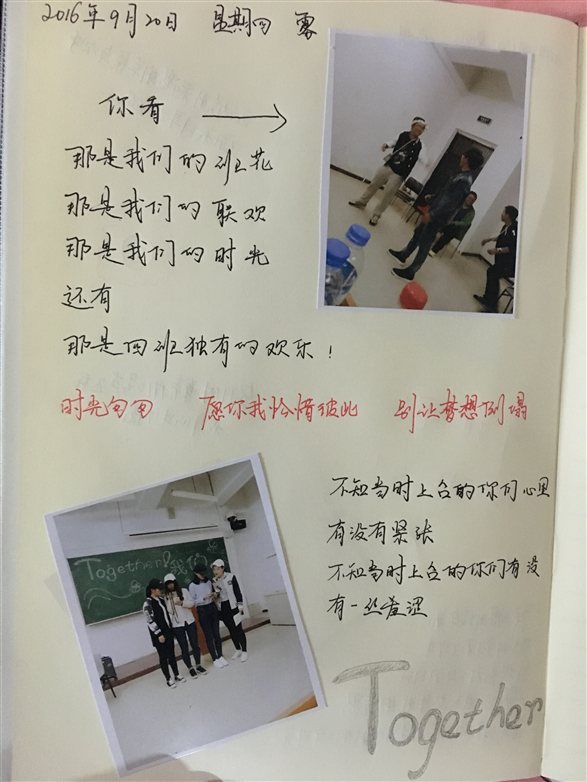 2016年9月20日 星期四 雾
你看
那是我们的班花
那是我们的联欢
那是我们的时光
还有
那是四班独有的欢乐！
时光匆匆 愿你我怜惜彼此 别让梦想倒塌
不知当时上台的你们心里
有没有紧张
不知当时上台的你们有没
有一丝羞涩
Together
我们
Together